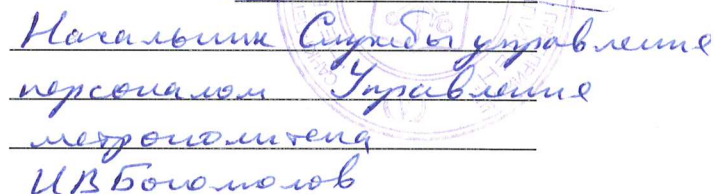 Начальник Службы управления
персоналом Управления
метрополитена
И В Богомолов